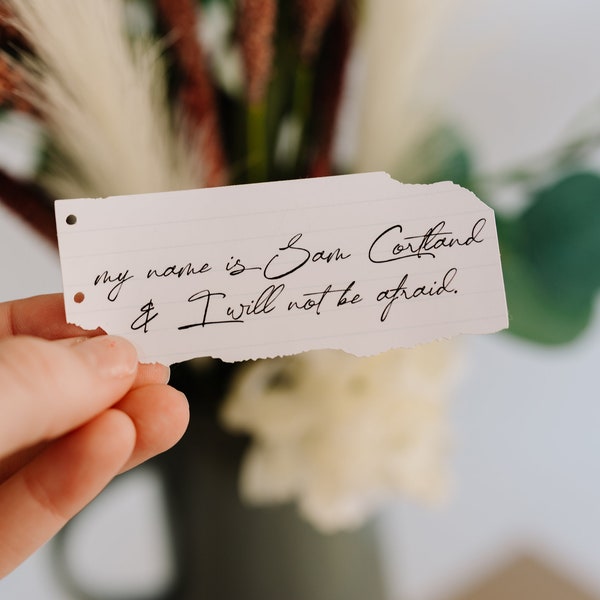 my name is Sam Cortland
& I will not be afraid.